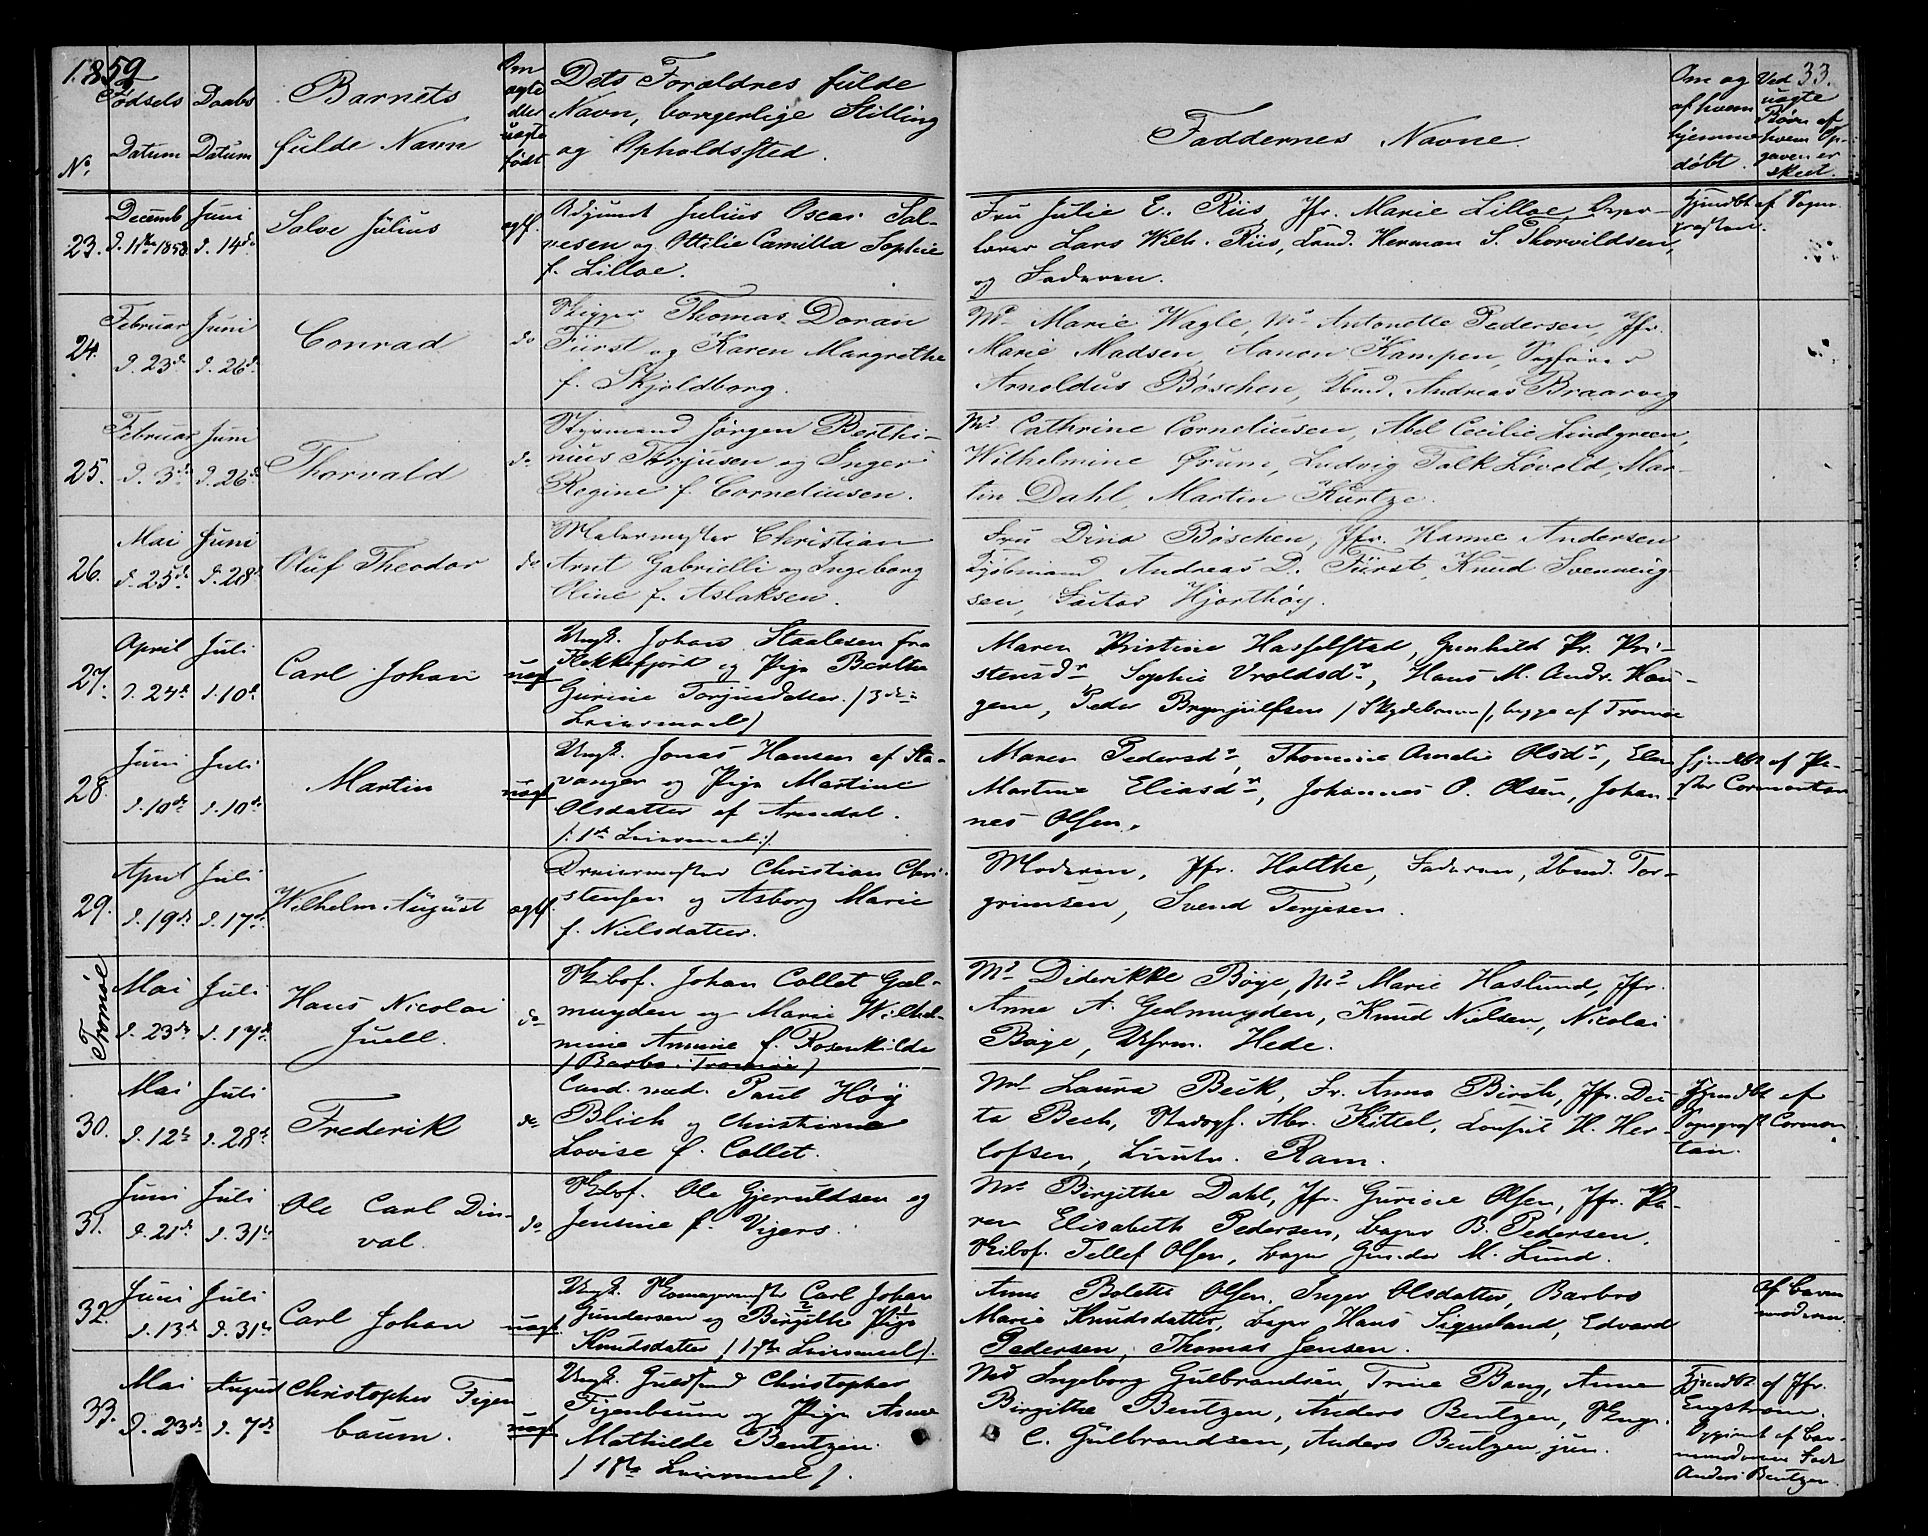 1859
33.
No.
Fødsels Datum
Daabs Datum
Barnets fulde Navn
Om ægte eller uægte født
Dets Forældres fulde
Navn, borgerlige Stilling
og Opholdssted.
Faddernes Navne.
Om og af hvem hjemme døbt.
Ved uægte Børn af hvem Opgaven er skeet.
23. Decemb. d. 11te 1858. Juni d. 14de Salve Julius ægtf.
Adjunct Julius Oscar Sal-
vesen og Ottilie Camilla Sophie
f. Lilloe.
Fru Julie E. Riis, Jfr. Marie Lilloe,
Lars Wilh. Riis, Cand. Herman S. Thorvildsen,
og Faderen.
Hjmdbt. af Sogne-
presten.
24. Februar d. 23de Juni d. 26de Conrad do
Skipper Thomas Doran
Fürst og Karen Margrethe
f. Skjoldborg.
Md. Marie Wagle, Md. Antonette Pedersen, Jfr.
Marie Madsen, Hanon Kampen,
Arnoldus Bøschen, Andreas Braarvig
25. Februar d. 3de Juni d. 26de Thorvald do
Styrmand Jørgen Berthi-
nius Torjusen og Inger
Regine f. Corneliusen.
Md. Cathrine Corneliusen, Abel Cecilie Lindgreen,
Wilhelmine Ørum, Ludvig Falk Løvold, Mar-
tin Dahl, Martin Kurtze.
26. Mai d. 25de Juni d. 28de Oluf Theodor do
Malermester Christian
Arnt Gabrielli og Ingeborg
Oline f. Aslaksen.
Fru Dina Bøschen, Jfr. Hanne Andersen
Kjøbmand Andreas D. Fürst, Knud Svenning-
sen, Factor Hjorthøy.
27. April d. 24de Juli d. 10de Carl Johan uægt
Ungk. Johan Staalesen fra
Flekkefjord og Pige Berthe
Gurine Torjusdatter. (3die
Leiermaal)
Maren Kristine Hasselstad, Gunhild Kr. Kri-
stensdr, Sophie Vroldsdr, Hans M. Andr. Hau-
gene, Peder Brynjulfsen (Skydebrun), begge af Tromøe
28. Juni d. 10de Juli d. 10de Martin uægt
Ungk. Jonas Hansen af Sta-
vanger og Pige Martine
Olsdatter af Arendal.
(: 1ste Leiermaal :)
Maren Pedersdr, Thomine Amalie Olsdr, Elen
Martine Eliasdr, Johannes O. Olsen, Johan-
nes Olsen.
Hjmdbt. af Pre-
ster Cormontan
29. April d. 19de Juli d. 17de Wilhelm August ægtf.
Dreiermester Christian Chri-
stensen og Asborg Marie
f. Nielsdatter.
Moderen, Jfr. Holthe, Faderen, Tor-
grimsen, Svend Terjesen.
Tromøe Mai d. 23de Juli d. 17de Hans Nicolai
Juell. do
Skibsf. Johan Collet Gel-
muyden og Marie Wilhel-
mine Amunie f. Rosenkilde
(Barbo: Tromøe)
Md. Diderikke Bøye, Md. Marie Haslund, Jfr.
Anne A. Gelmuyden, Knud Nielsen, Nicolai
Bøye, Hede.
30. Mai d. 12te Juli d. 28de Frederik do
Cand. med. Paul Høy
Blich og Christiane
Lovise f. Collet.
Md. Laura Beck, Fr. Anna Birch, Jfr. Di-
ta Bech, Abr. Kittel, Consul H. Her-
lofsen, Lieutn. Ram.
Hjmdbt. af
Sognepr. Cormon
tan.
31. Juni d. 21de Juli d. 31te Ole Carl Din-
val. do
Skibsf. Ole Gjeruldsen og
Jensine f. Vigers.
Md. Birgithe Dahl, Jfr. Gurine Olsen, Jfr. Ka-
ren Elisabeth Pedersen, Bager B. Pedersen.
Skibsf. Tellef Olsen, Bager Gunder M. Lund.
32. Juni d. 13de Juli d. 31te Carl Johan uægt.
Ungk. Skomagermester Carl Johan
Gundersen og Birgithe Pige
Knudsdatter (1ste Leiermaal).
Anne Bolette Olsen, Inger Olsdatter, Barbro
Marie Knudsdatter, Bager Hans Siqueland, Edvard
Pedersen, Thomas Jensen.
Af Barne
moderen.
33. Mai d. 23de August d. 7de Christopher Figen
baum. uægt
Ungk. Guldsmed Christopher
Figenbaum og Pige Anne
Mathilde Bentzen.
(1ste Leiermaal).
Md Ingeborg Gulbrandsen, Trine Bang, Anne
Birgithe Bentzen, Anders Bentzen,
C. Gulbrandsen, Anders Bentzen jun.
Hjmdbt. af Jfr.
Engstrøm.
Opgivet af Bar-
nemoderens Fader
Anders Bentzen.